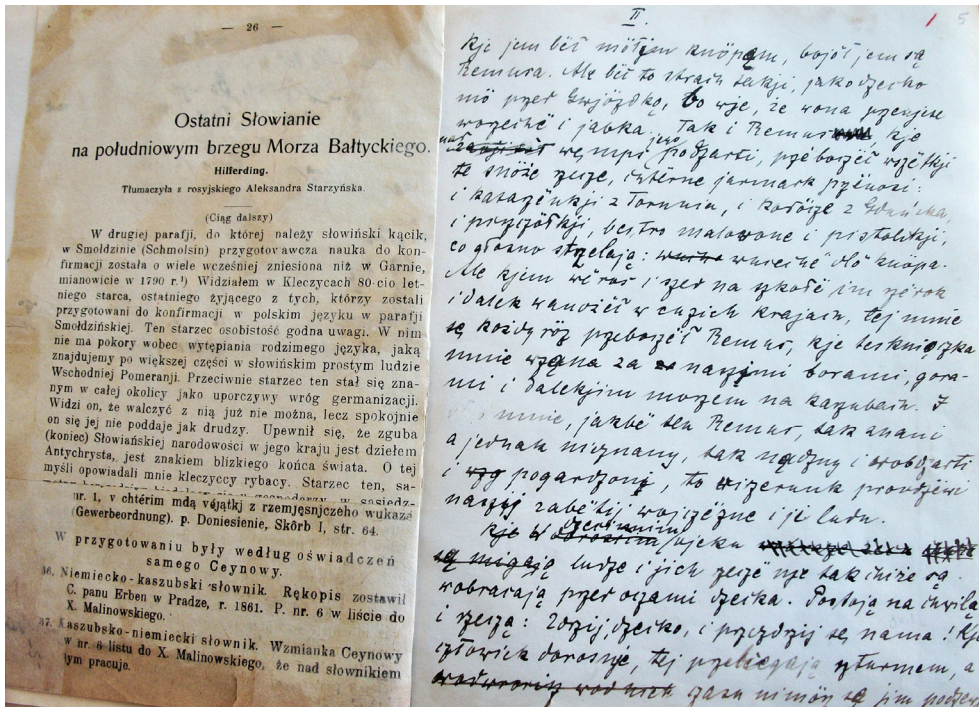 — 26 —
Ostatni Słowianie
na południowym brzegu Morza Bałtyckiego.
Hilferding.
Tłumaczyła z rosyjskiego Aleksandra Starzyńska.
(Ciąg dalszy)
W drugiej parafji, do której należy słowiński kącik,
w Smołdzinie (Schmolsin) przygotowawcza nauka do kon-
firmacji została o wiele wcześniej zniesiona niż w Garnie,
mianowicie w 1790 r.¹) Widziałem w Kleczycach 80-cio let-
niego starca, ostatniego żyjącego z tych, którzy zostali
przygotowani do konfirmacji w polskim języku w parafji
Smołdzińskiej. Ten starzec osobistość godna uwagi. W nim
nie ma pokory wobec wytępiania rodzimego języka, jaką
znajdujemy po większej części w słowińskim prostym ludzie
Wschodniej Pomeranji. Przeciwnie starzec ten stał się zna-
nym w całej okolicy jako uporczywy wróg germanizacji.
Widzi on, że walczyć z nią już nie można, lecz spokojnie
on się jej nie poddaje jak drudzy. Upewnił się, że zguba
(koniec) Słowiańskiej narodowości w jego kraju jest dziełem
Antychrysta, jest znakiem blizkiego końca świata. O tej
myśli opowiadali mnie kleczyccy rybacy. Starzec ten, sa-
nr. 1, v chtérim mdą véjątkj z rzemjęsnjczeho wukazë
(Gewerbeordnung). p. Doniesienie, Skôrb I, str. 64.
W przygotowaniu były według oświadczeń
samego Ceynowy.
36. Niemiecko-kaszubski słownik. Rękopis zostawił
C. panu Erben w Pradze, r. 1861. P. nr. 6 w liście do
X. Malinowskiego.
37. Kaszubsko-niemiecki słownik. Wzmianka Ceynowy
w nr. 6 listu do X. Malinowskiego, że nad słownikiem
tym pracuje.
II.
1 5
Kje jem béł môłim knôpem, bojôł jem są
Remusa. Ale béł to strach takji, jako dzecko
mô przed Gwjôzdką, bo wje, że wona przenjese
worzechë i jabka. Tak i Remus, kje
te snôże rzecze, chterne jarmark przënosi:
i katarzënkji z Torunia, i kołôcze z Gduńska,
i przczółkji, bestro malowone i pistoletkji,
co głosno strzelają: wurzechë dlô knôpa.
Ale kjem wërôs i szed na szkołë im szerok
i dalek wanożéł w cuzich krajach, tej mnie
są kożdy rôz przeboczéł Remus, kje teskniączka
mnie wzęna za naszimi borami, gora-
mi i dalekjim morzem na Kaszubach. I
mnie, jakbë ten Remus, tak znani
a jednak nieznany, tak nądzny i wobdzarti
i pogardzony, to wizerunk prowdzëwi
naszij zabëtij wojczëzne i ji ludu.
ludze i jich rzeczë nje tak chiże są
wobracają przed oczami dzecka. Postoją na chwilą
i rzeczą: Zdrzij dzecko, i przezdrzij sę nama! Kje
człowiek dorosnje, tej przebiegają szturmem, a